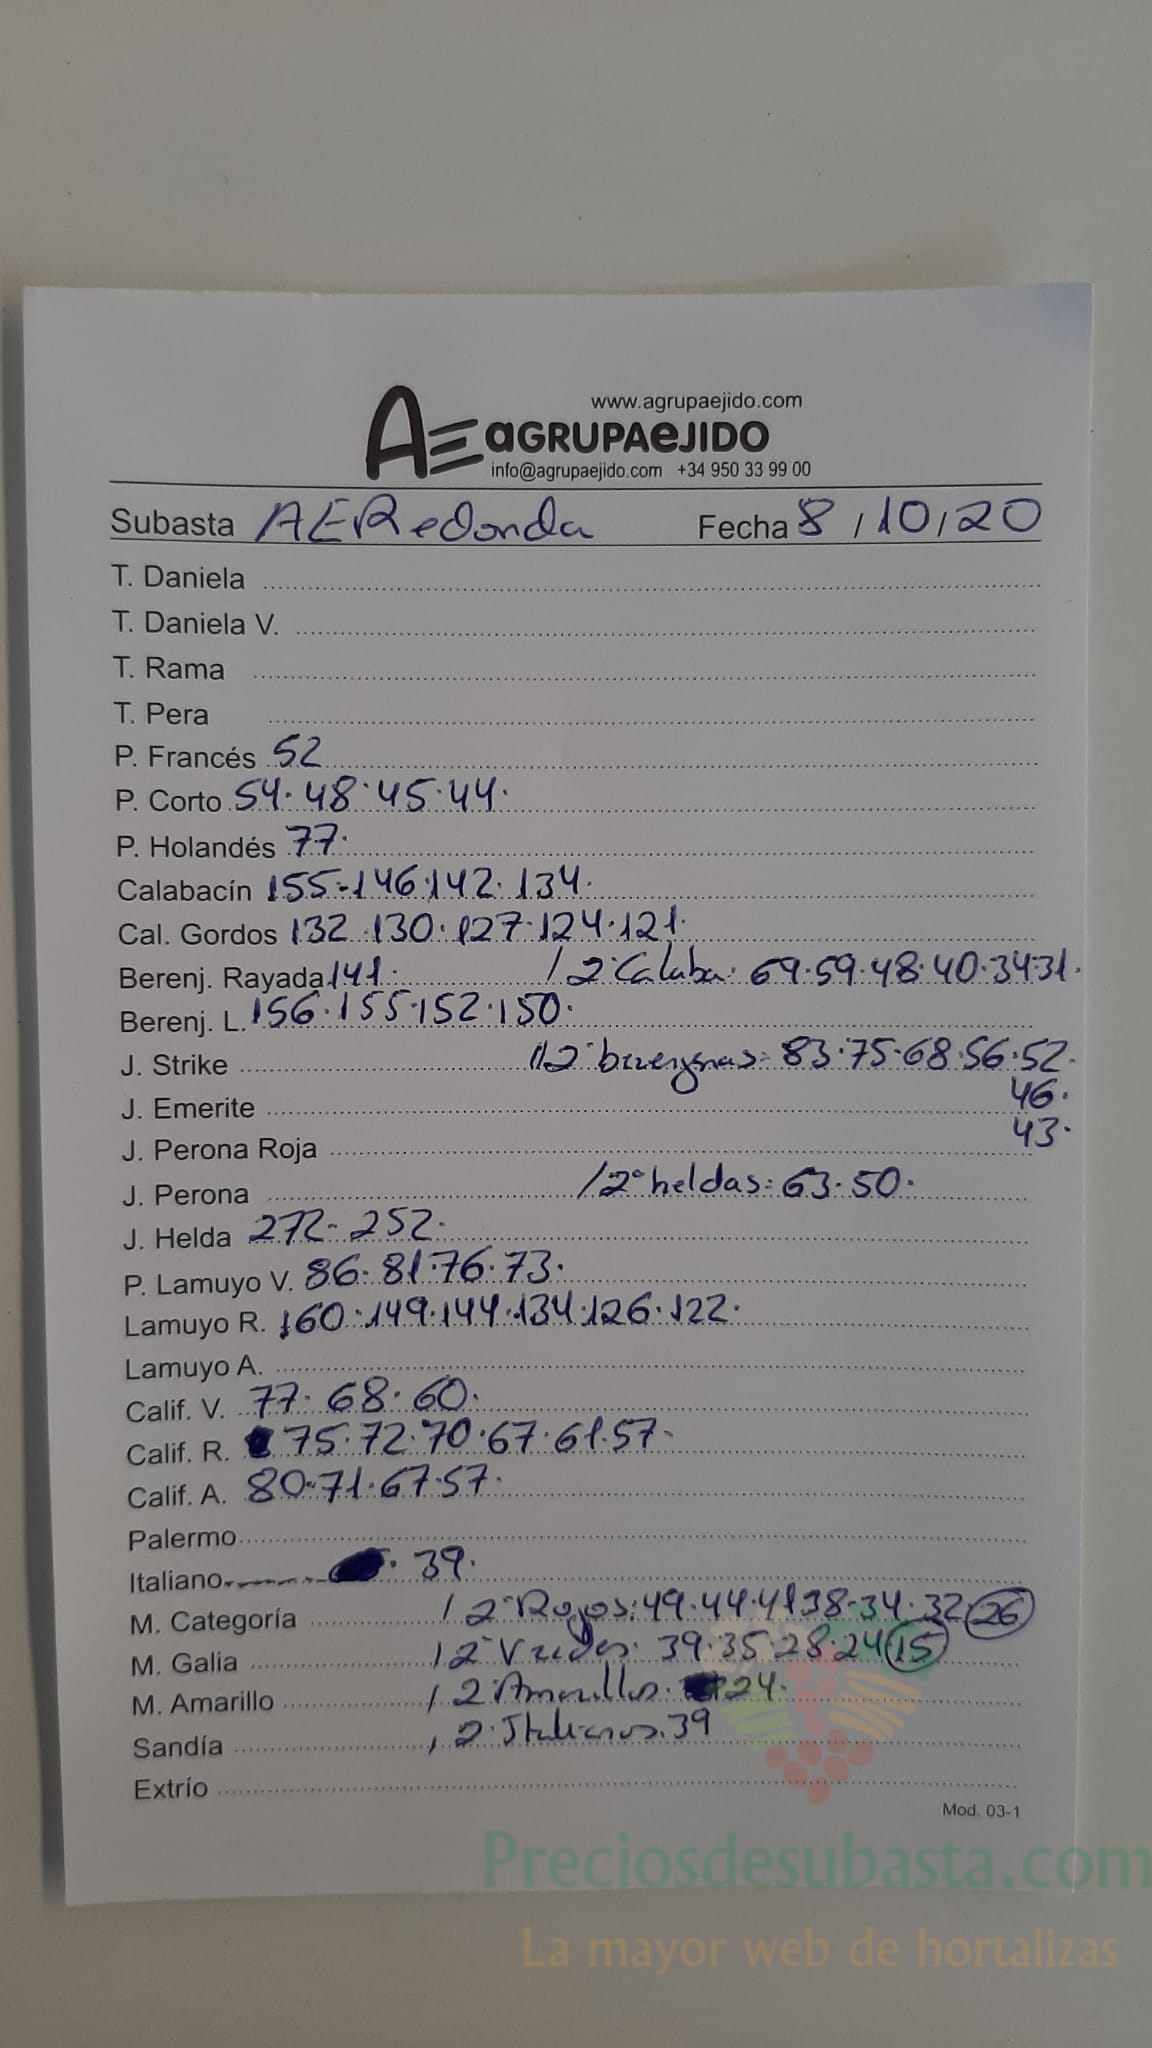 www.agrupaejido.com
AE aGRUPAeJIDO
info@agrupaejido.com +34 950 33 99 00
Subasta AERedonda Fecha 8/10/20
T. Daniela
T. Daniela V.
T. Rama
T. Pera
P. Francés 52
P. Corto 54. 48. 45. 44.
P. Holandés 77.
Calabacín 155-146.142. 134.
Cal. Gordos 132.130.127.124.121.
Berenj. Rayada 141. / 2ª Calaba: 69.59.48.40.34.31.
Berenj. L. 156.155.152.150.
J. Strike 2ª berengenas: 83.75.68.56.52.
J. Emerite 46.
J. Perona Roja 43.
J. Perona / 2ª heldas: 63.50.
J. Helda 272- 252.
P. Lamuyo V. 86. 81.76.73.
Lamuyo R. 160.149.144.134.126.122.
Lamuyo A.
Calif. V. 77. 68. 60.
Calif. R. 75.72.70.67.61.57.
Calif. A. 80.71.67.57.
Palermo
Italiano 39.
M. Categoría / 2ª Rojos: 49.44.41 38.34.32 26
M. Galia / 2ª Verdes: 39.35.28.24 15
M. Amarillo / 2ª Amarillos. 24.
Sandía / 2ª Italianos. 39
Extrío
Mod. 03-1
Preciosdesubasta.com
La mayor web de hortalizas